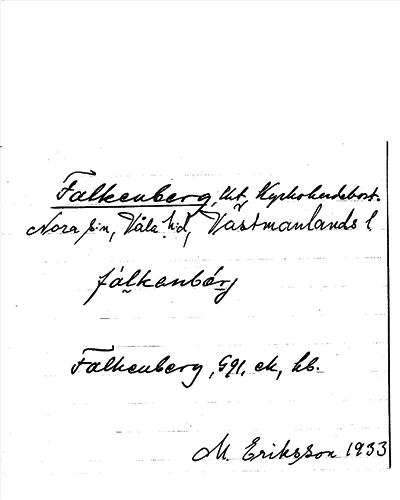 Falkenberg, tht, Kyrkoherdebost.
Nora s:n, Våla h:d, Västmanlands l
fálkenbárj
Falkenberg, Ggl. ek, hb.
M. Eriksson 1933